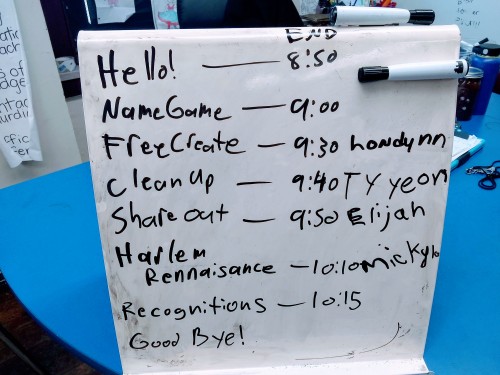 END
Hello! — 8:50
NameGame — 9:00
FreeCreate — 9:30 Londynn
Clean up — 9:40 TY yeon
Share out — 9:50 Elijah
Harlem
Rennaisance — 10:10
Recognitions — 10:15
Good Bye!